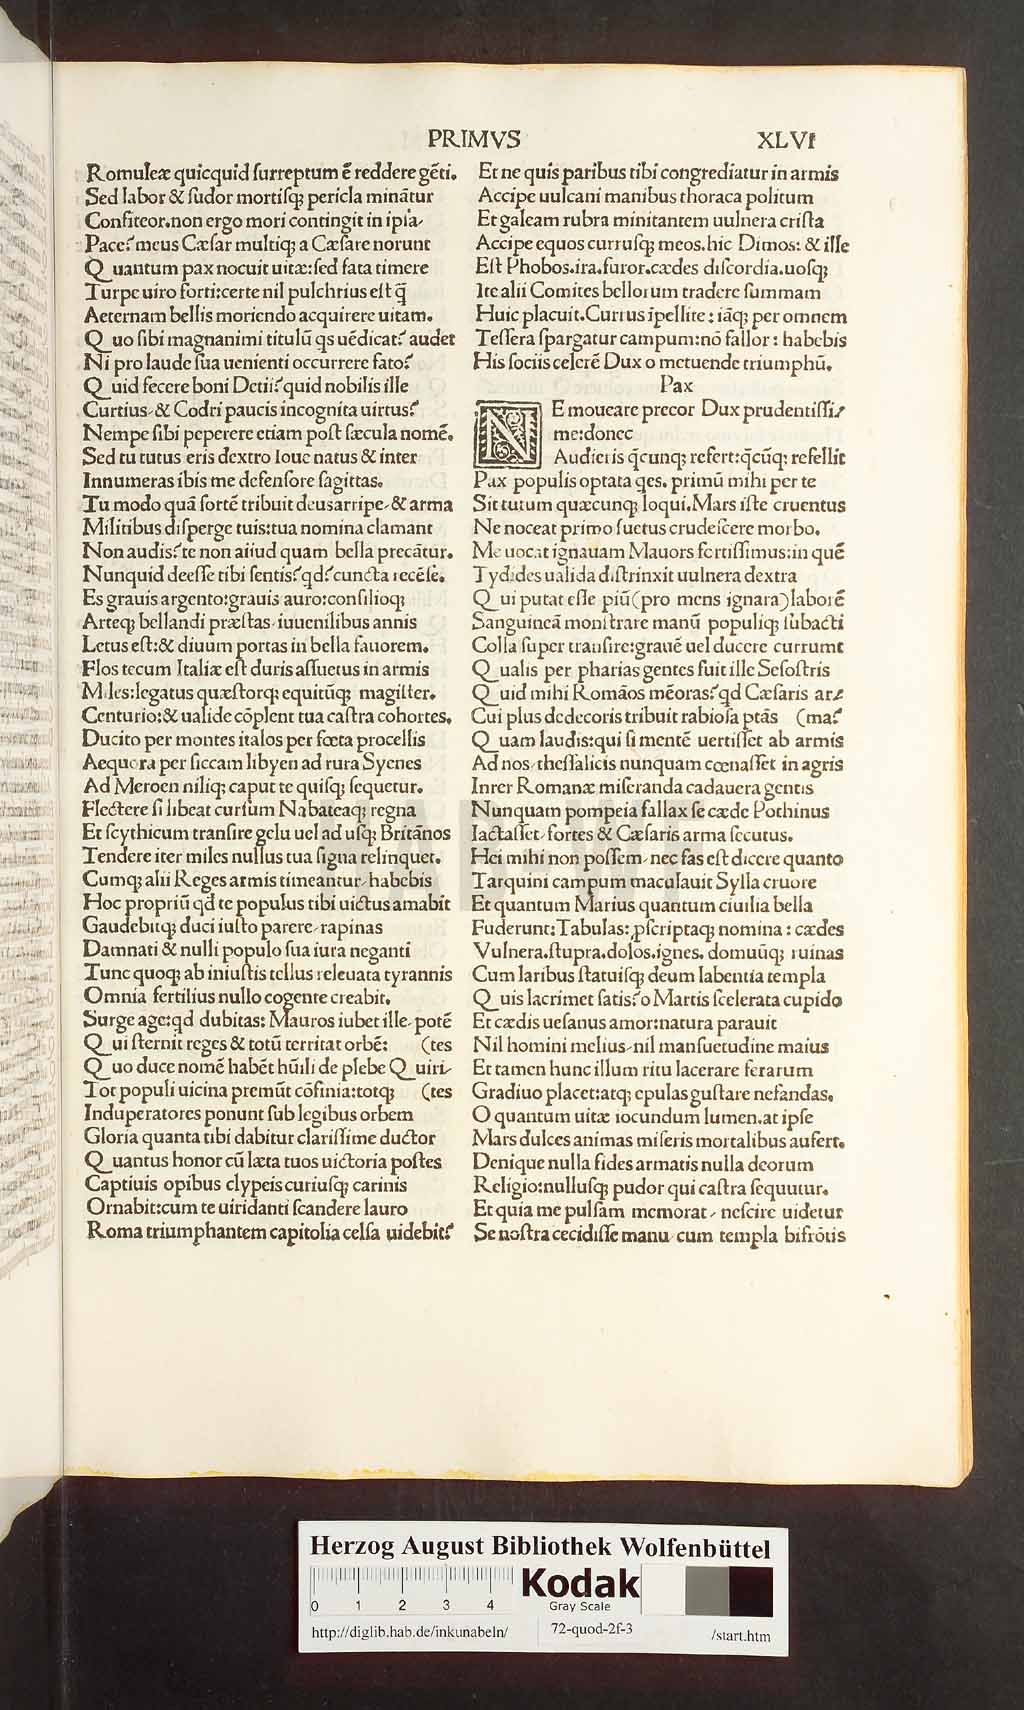 PRIMVS XLVI
Romuleæ quicquid surreptum ē reddere gēti.
Sed labor & sudor mortisq; pericla minātur
Confiteor.non ergo mori contingit in ipsa
Pace? meus Cæsar multiq; a Cæsare norunt
Quantum pax nocuit uitæ:sed fata timere
Turpe uiro forti:certe nil pulchrius est q̄
Aeternam bellis moriendo acquirere uitam.
Quo sibi magnanimi titulū qs uēdicat? audet
Ni pro laude sua uenienti occurrere fato?
Quid fecere boni Detii? quid nobilis ille
Curtius & Codri paucis incognita uirtus?
Nempe sibi peperere etiam post sæcula nomē.
Sed tu tutus eris dextro Ioue natus & inter
Innumeras ibis me defensore sagittas.
Tu modo quā sortē tribuit deus arripe & arma
Militibus disperge tuis:tua nomina clamant
Non audis? te non aliud quam bella precātur.
Nunquid deesse tibi sentis? qd? cuncta recēse.
Es grauis argento:grauis auro:consilioq;
Arteq; bellandi præstas iuuenilibus annis
Letus est:& diuum portas in bella fauorem.
Flos tecum Italiæ est duris assuetus in armis
Miles:legatus quæstorq; equitūq; magister.
Centurio:& ualide cōplent tua castra cohortes.
Ducito per montes italos per fœta procellis
Aequora per siccam libyen ad rura Syenes
Ad Meroen niliq; caput te quisq; sequetur.
Flectere si libeat cursum Nabateaq; regna
Et scythicum transire gelu uel ad usq; Britānos
Tendere iter miles nullus tua signa relinquet.
Cumq; alii Reges armis timeantur habebis
Hoc propriū qd te populus tibi uictus amabit
Gaudebitq; duci iusto parere rapinas
Damnati & nulli populo sua iura neganti
Tunc quoq; ab iniustis tellus releuata tyrannis
Omnia fertilius nullo cogente creabit.
Surge age:qd dubitas: Mauros iubet ille potē
Qui sternit reges & totū territat orbē: (tes
Quo duce nomē habēt hūili de plebe Quiri
Tot populi uicina premūt cōfinia:totq; (tes
Induperatores ponunt sub legibus orbem
Gloria quanta tibi dabitur clarissime ductor
Quantus honor cū læta tuos uictoria postes
Captiuis opibus clypeis curiusq; carinis
Ornabit:cum te uiridanti scandere lauro
Roma triumphantem capitolia celsa uidebit?
Et ne quis paribus tibi congrediatur in armis
Accipe uulcani manibus thoraca politum
Et galeam rubra minitantem uulnera crista
Accipe equos currusq; meos.hic Dimos: & ille
Est Phobos.ira.furor.cædes discordia.uosq;
Ite alii Comites bellorum tradere summam
Huic placuit.Currus īpellite:iāq; per omnem
Tessera spargatur campum:nō fallor: habebis
His sociis celerē Dux o metuende triumphū.
Pax
NE moueare precor Dux prudentissi
me:donec
Audieris q̄cunq; refert:q̄cūq; refellit
Pax populis optata qes. primū mihi per te
Sit tutum quæcunq; loqui.Mars iste cruentus
Ne noceat primo suetus crudescere morbo.
Me uocat ignauam Mauors fortissimus:in quē
Tydides ualida distrinxit uulnera dextra
Qui putat esse piū(pro mens ignara)laborē
Sanguineā monstrare manū populiq; subacti
Colla super trāsire:grauē uel ducere currumt
Qualis per pharias gentes fuit ille Sesostris
Quid mihi Romāos mēoras? qd Cæsaris ar
Cui plus dedecoris tribuit rabiosa ptās (ma?
Quam laudis:qui si mentē uertisset ab armis
Ad nos thessalicis nunquam cœnasset in agris
Inter Romanæ miseranda cadauera gentis
Nunquam pompeia fallax se cæde Pothinus
Iactasset fortes & Cæsaris arma secutus.
Hei mihi non possem nec fas est dicere quanto
Tarquini campum maculauit Sylla cruore
Et quantum Marius quantum ciuilia bella
Fuderunt:Tabulas:ꝓscriptaq; nomina : cædes
Vulnera.stupra.dolos.ignes. domuūq; ruinas
Cum laribus statuisq; deum labentia templa
Quis lacrimet satis? o Martis scelerata cupido
Et cædis uesanus amor:natura parauit
Nil homini melius nil mansuetudine maius
Et tamen hunc illum ritu lacerare ferarum
Gradiuo placet:atq; epulas gustare nefandas.
O quantum uitæ iocundum lumen.at ipse
Mars dulces animas miseris mortalibus aufert.
Denique nulla fides armatis nulla deorum
Religio:nullusq; pudor qui castra sequutur.
Et quia me pulsam memorat nescire uidetur
Se nostra cecidisse manu cum templa bifrōtis
HAB-WF
Herzog August Bibliothek Wolfenbüttel
0 1 2 3 4
Kodak
Gray Scale
http://diglib.hab.de/inkunabeln/ 72-quod-2f-3 /start.htm